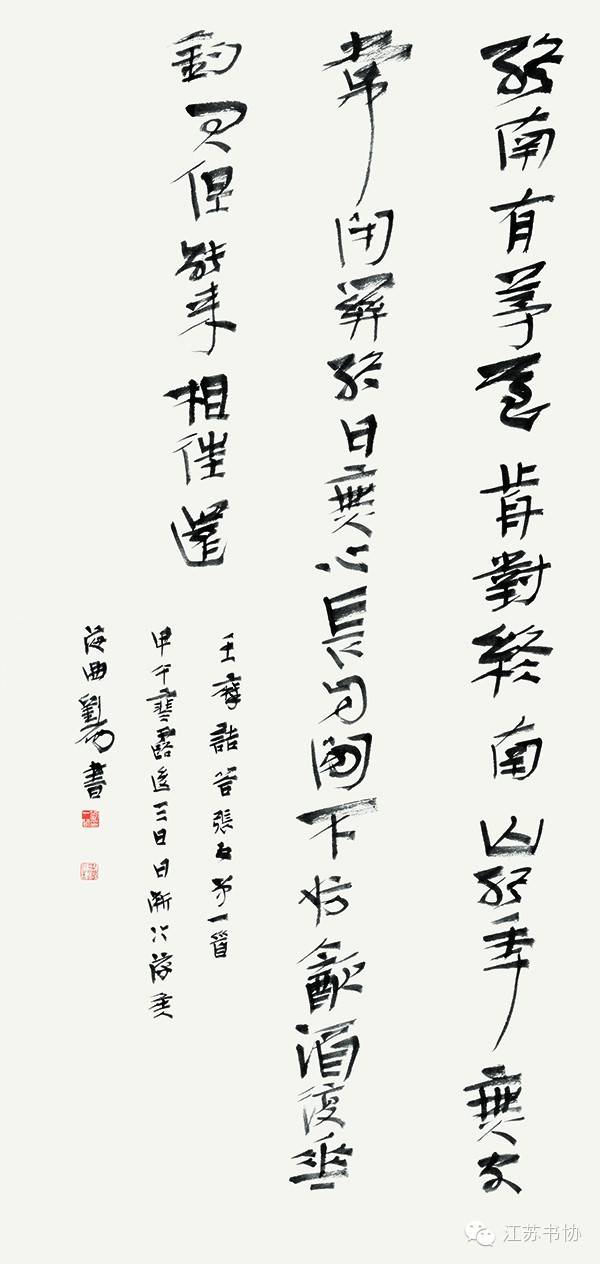 終南有茅屋前對終南山終年無客
常閉關終日無心長自閑不妨飲酒復垂
釣君但能來相往還
王摩詰答張五弟一首
甲午寒露後三日日漸
海曲劉 書
江苏书协